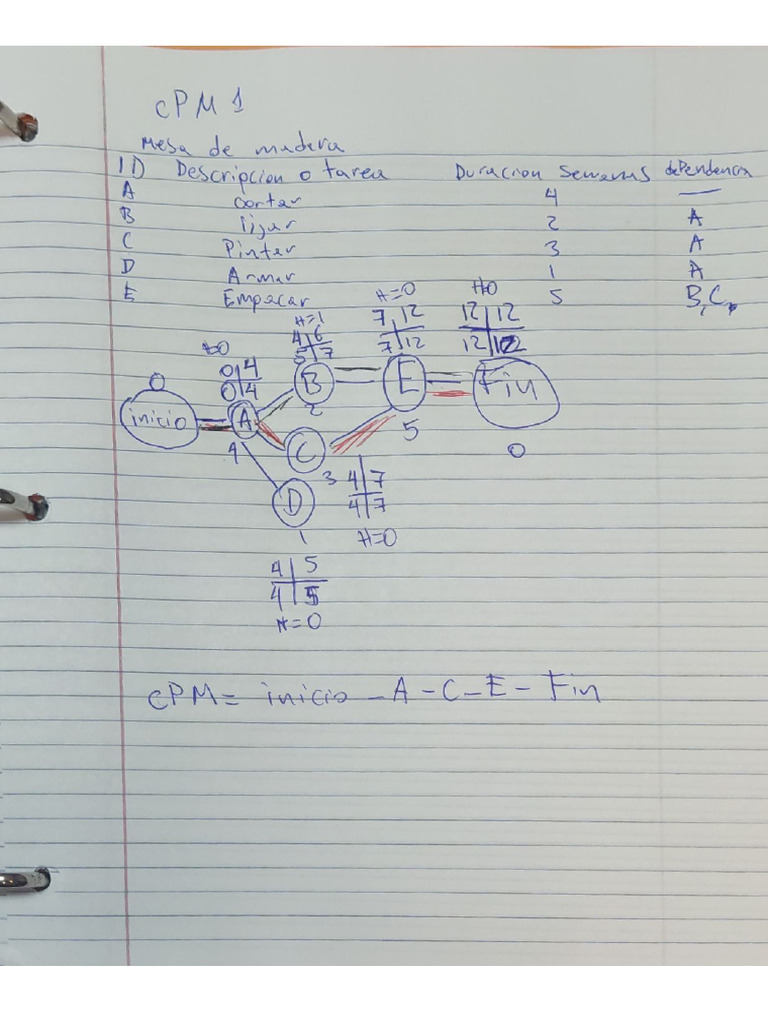 CPM 1
Mesa de madera
ID Descripcion o tarea Duracion semanas dependencia
A cortar 4 —
B lijar 2 A
C Pintar 3 A
D Armar 1 A
E Empacar 5 B, C,
H=1 H=0 H=0
4 6 7 12 12 12
5 7 7 12 12 12
H=0
0 4
0 4
0
inicio A B E Fin
4 2 5 0
C
3 4 7
4 7
H=0
D
1
4 5
4 5
H=0
CPM= inicio - A - C - E - Fin